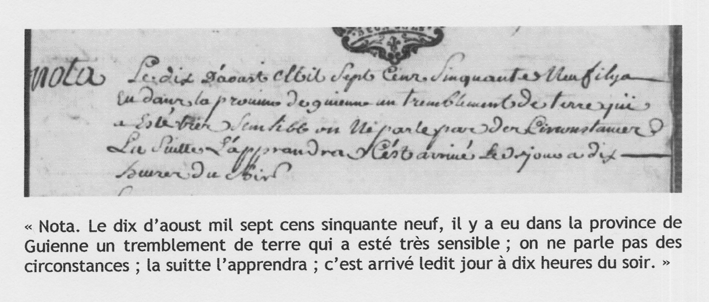 nota
Le dix d'aoust Mil Sept Cens Sinquante Neuf il y a
Eu dans la province de guienne un tremblement de terre qui
a Esté très Sensible on Ne parle pas des Circonstances
La Suitte L'apprendra C'est arrivé Le d jour a dix
heures du Soir
« Nota. Le dix d’aoust mil sept cens sinquante neuf, il y a eu dans la province de
Guienne un tremblement de terre qui a esté très sensible ; on ne parle pas des
circonstances ; la suitte l’apprendra ; c’est arrivé ledit jour à dix heures du soir. »